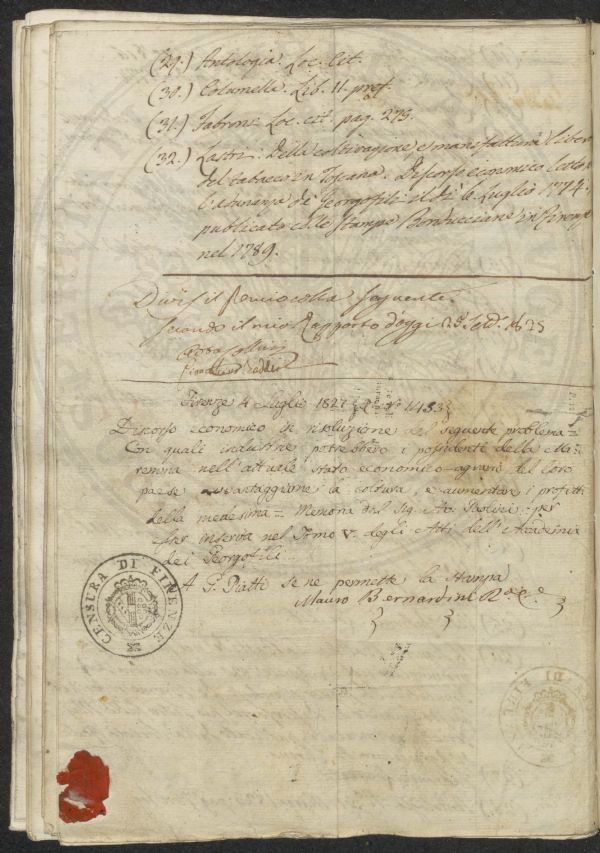 (29.) Antologia. Loc. Cit.
(30.) Columella. Lib. 11. pref.
(31.) Fabroni Loc. cit. pag. 273.
(32.) Lastri: Della coltivazione, e manifattura libera
del tabacco in Toscana. Discorso economico letto
l'adunanza de' Georgofili il dì 6. Luglio 1774.
pubblicato colle stampe Bonducciane in Firenze
nel 1789.
seguente.
secondo il mio Rapporto d'oggi 25.
Firenze 4 Luglio 1827 1453
Discorso economico in risoluzione del seguente problema =
Con quali industrie potrebbero i possidenti della Ma-
remma nell'attuale stato economico-agrario del loro
paese avvantaggiare la coltura, e aumentare i profitti
della medesima = Memoria del Sig. Paolini per
esser inserita nel Tomo V. degli Atti dell'Accademia
dei Georgofili
A G. Piatti se ne permette la stampa
Mauro Bernardini
CENSURA DI FIRENZE